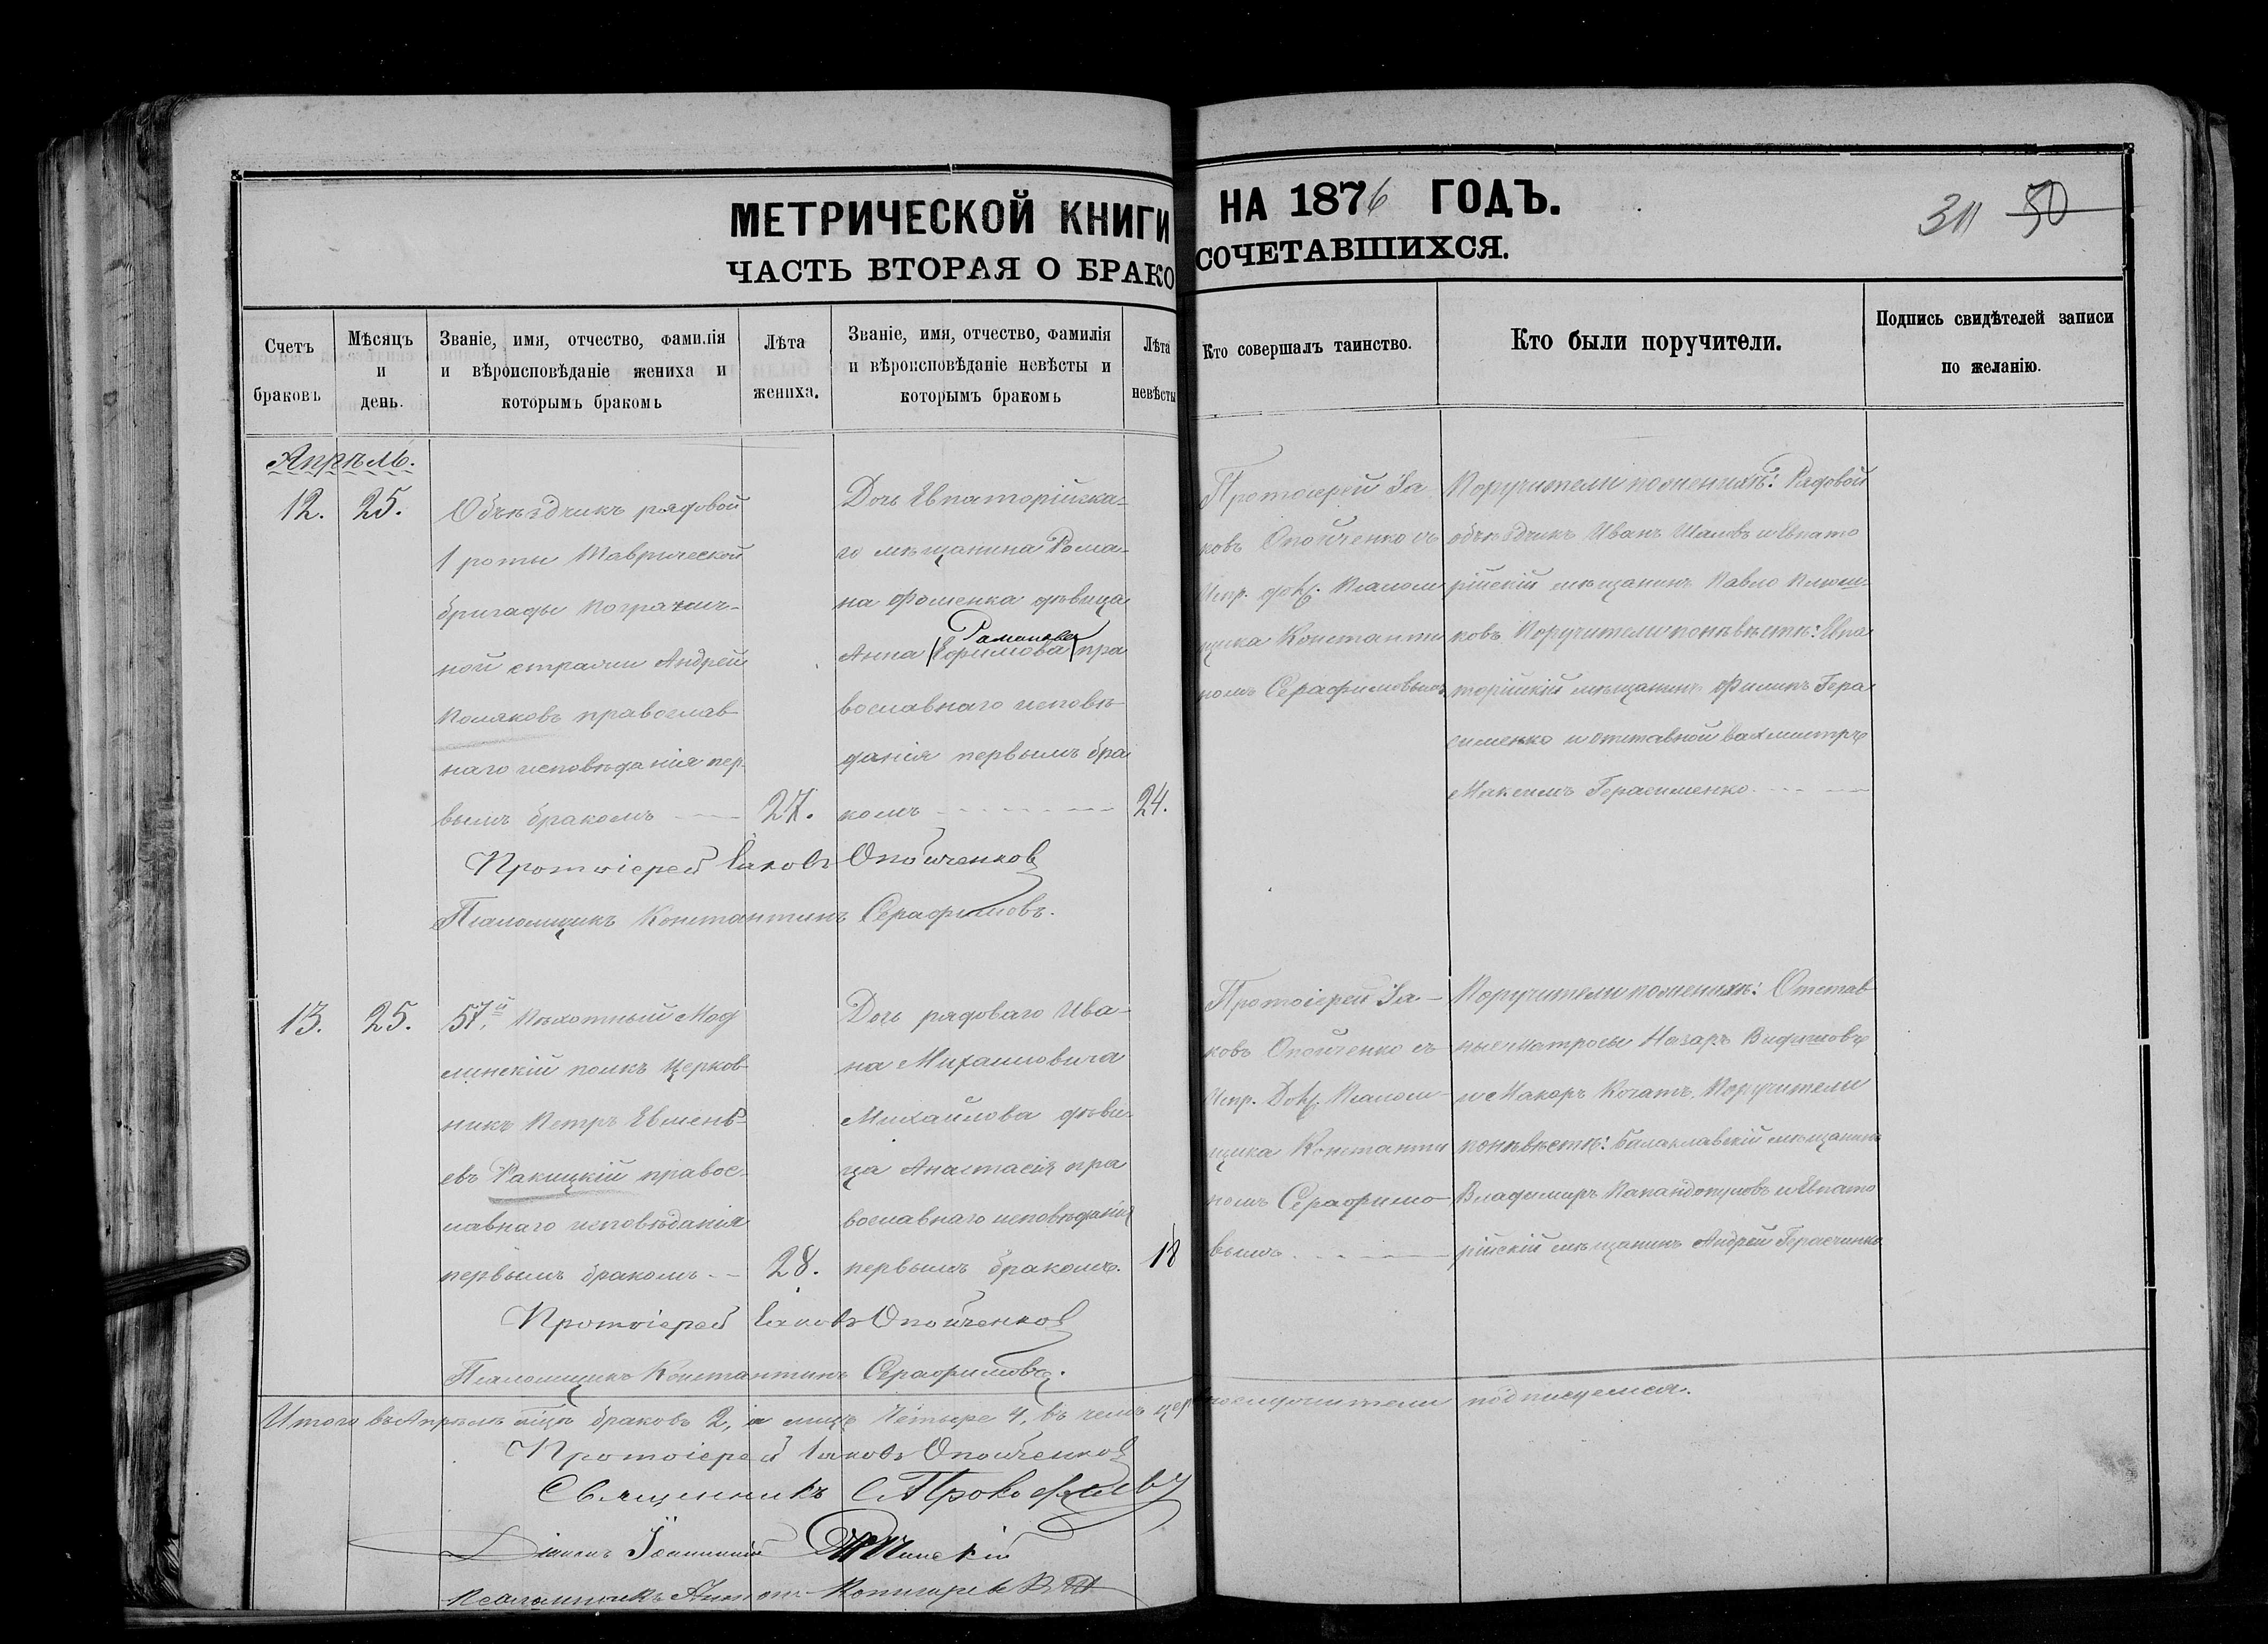 МЕТРИЧЕСКОЙ КНИГИ НА 1876 ГОДЪ.
ЧАСТЬ ВТОРАЯ О БРАКОСОЧЕТАВШИХСЯ.
311 50
Счетъ браковъ
Мѣсяцъ и день.
Званіе, имя, отчество, фамилія
и вѣроисповѣданіе жениха и
которымъ бракомъ
Лѣта жениха.
Званіе, имя, отчество, фамилія
и вѣроисповѣданіе невѣсты и
которымъ бракомъ
Лѣта невѣсты
Кто совершалъ таинство.
Кто были поручители.
Подпись свидѣтелей записи
по желанію.
Апрѣль.
12. 25.
Объѣздчикъ рядовой
1 роты Таврической
бригады погранич-
ной стражи Андрей
Поляковъ православ
наго исповѣданія пер
вымъ бракомъ
27.
Дочь Евпаторійска-
го мѣщанина Рома-
на Фоменка дѣвица
Романова
Анна (Ефимова) пра
вославнаго исповѣ
данія первымъ бра
комъ
24.
Протоіерей Іа
ковъ Опойченко съ
Испр. долж. Псалом
щика Константи
номъ Серафимовымъ
Поручители по женихѣ: Рядовой
объѣздчикъ Иванъ Шамовъ и Евпато
рійскій мѣщанинъ Павло Плюш-
ковъ Поручители по невѣстѣ: Евпа
торійскій мѣщанинъ Филипъ Гера
сименко и отставной вахмистръ
Максимъ Герасименко.
Протоіерей Іаковъ Опойченковъ
Псаломщикъ Константинъ Серафимовъ.
13. 25.
57й Пѣхотный Мод
линскій полкъ церков
никъ Петръ Евмень-
евъ Ракицкій правос-
лавнаго исповѣданія
первымъ бракомъ
28.
Дочь рядоваго Ива-
на Михаиловича
Михайлова дѣви-
ца Анастасія пра
вославнаго исповѣданія
первымъ бракомъ.
18
Протоіерей Іа-
ковъ Опойченко съ
Испр. Долж. Псалом-
щика Константи
номъ Серафимо-
вымъ
Поручители по женихѣ: Отстав
ные матросы Назаръ
и Макаръ Когатъ. Поручители
по невѣстѣ: Балаклавскій мѣщанинъ
Владимиръ Папандопуловъ и Евпато
рійскій мѣщанинъ Андрей
Протоіерей Іаковъ Опойченковъ
Псаломщикъ Константинъ Серафимовъ.
Итого въ Апрѣлѣ м͠цѣ браковъ 2, а лицъ Четыре 4, въ чемъ церковнослужители подписуемся.
Протоіерей Іаковъ Опойченковъ
Священникъ С. Прокофьевъ
Діаконъ Іоанникій
Псаломщикъ